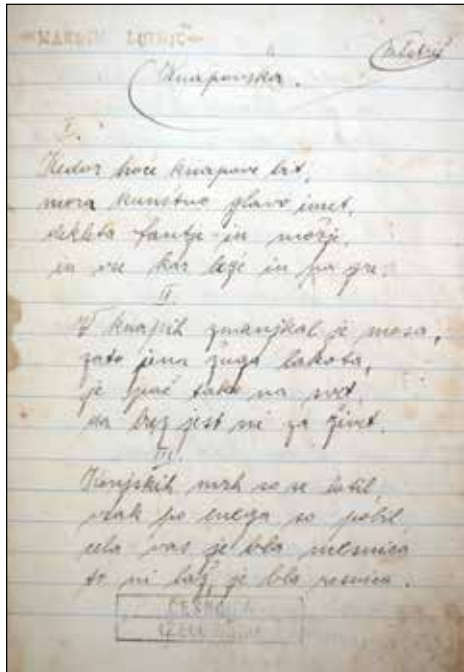 MAKSIM
Knapovska.
I.
Kedor hoče knapove bit,
mora kunstno glavo imet,
dekleta fantje in možje,
in vse kar leze in pa gre.
II.
V knapih zmanjkal je mesa,
zato jena žuga lakota,
je pač tako na svet,
da brez jest ni za živet.
III.
Konjskih mrh so se lotil,
vsak po enega so pobil,
cela vas je bla mesnica
to ni laž, je bla resnica.